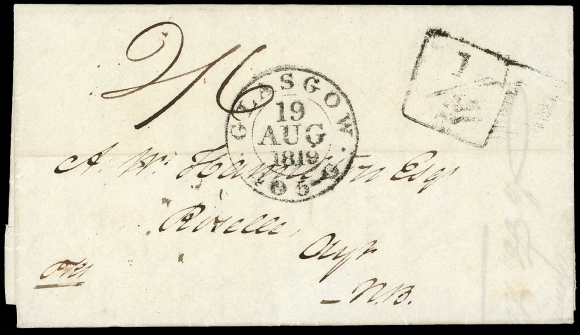 2/6
GLASGOW
19
AUG
1819
405-G
1
A. W. Hamilton Esqr
Rozelle,
Ayr
N.B.